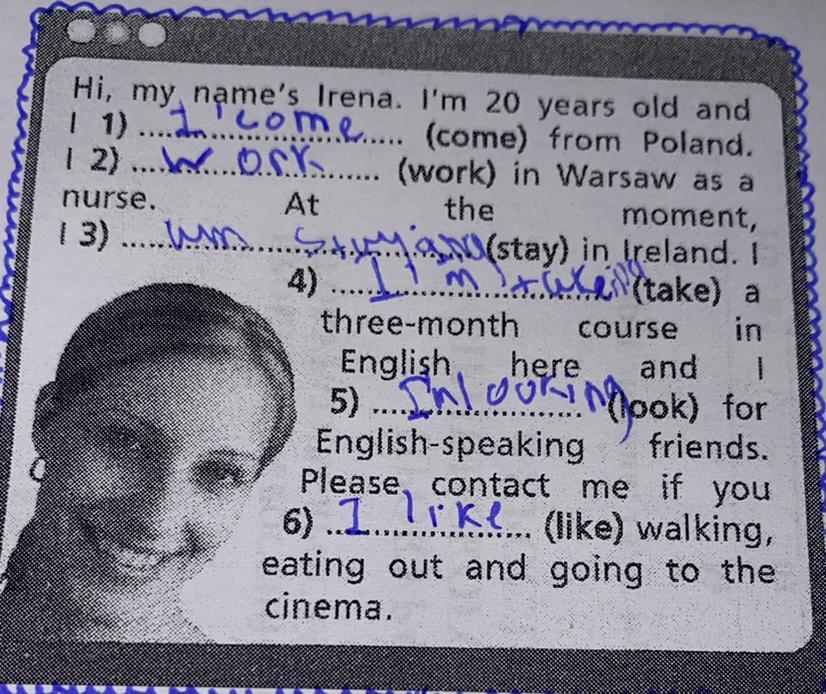 Hi, my name's Irena. I'm 20 years old and
I 1) I come (come) from Poland.
I 2) work (work) in Warsaw as a
nurse. At the moment,
I 3) (stay) in Ireland. I
4) I'm takeing (take) a
three-month course in
English here and I
5) (look) for
English-speaking friends.
Please contact me if you
6) I like (like) walking,
eating out and going to the
cinema.